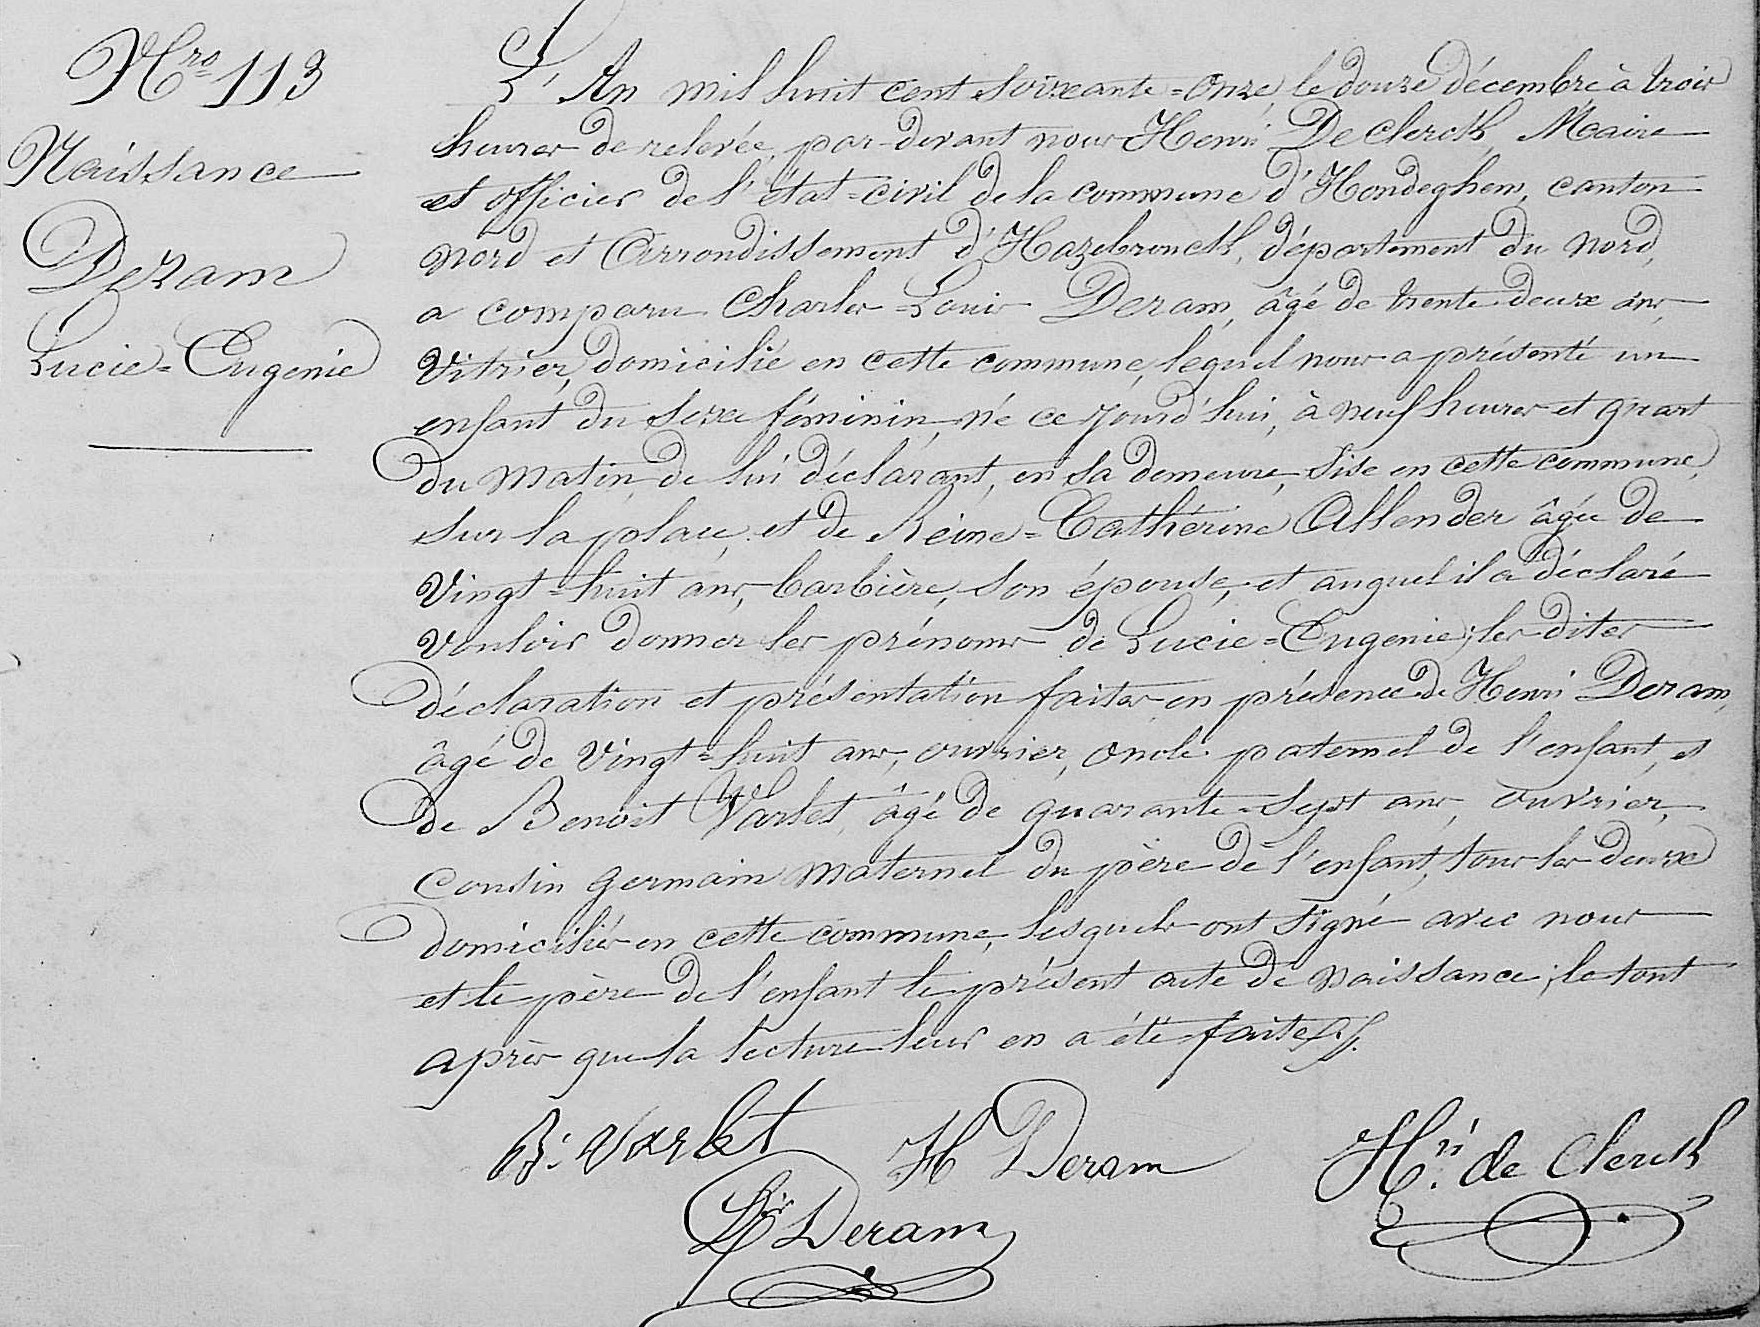 Nro 113
Naissance
Deram
Lucie=Eugenie
L'An mil huit cent soixante=onze, le douze décembre à trois
heures de relevée, par-devant nous Henri De Clerck, Maire
et officier de l'état=civil de la commune d'Hondeghem, canton
nord et Arrondissement d'Hazebrouck, département du Nord,
a comparu Charles=Louis Deram, âgé de trente-deux ans,
Vitrier, domicilié en cette commune, lequel nous a présenté un
enfant du sexe féminin, né ce jourd'hui, à neuf heures et quart
du matin, de lui déclarant, en sa demeure, sise en cette commune,
sur la place, et de Reine=Cathérine Allender âgée de
Vingt=huit ans, barbière, son épouse, et auquel il a déclaré
vouloir donner les prénoms de Lucie=Eugenie; les dites
déclaration et présentation faites en présence de Henri Deram,
âgé de vingt=huit ans, ouvrier, oncle paternel de l'enfant, et
de Benoit Varlet, âgé de quarante=sept ans, ouvrier,
cousin germain maternel du père de l'enfant, tous les deux
domiciliés en cette commune, lesquels ont signé avec nous
et le père de l'enfant le présent acte de naissance; le tout
après que la lecture leur en a été faite.
B. Varlet H Deram Hri de Clerck
Ls Deram